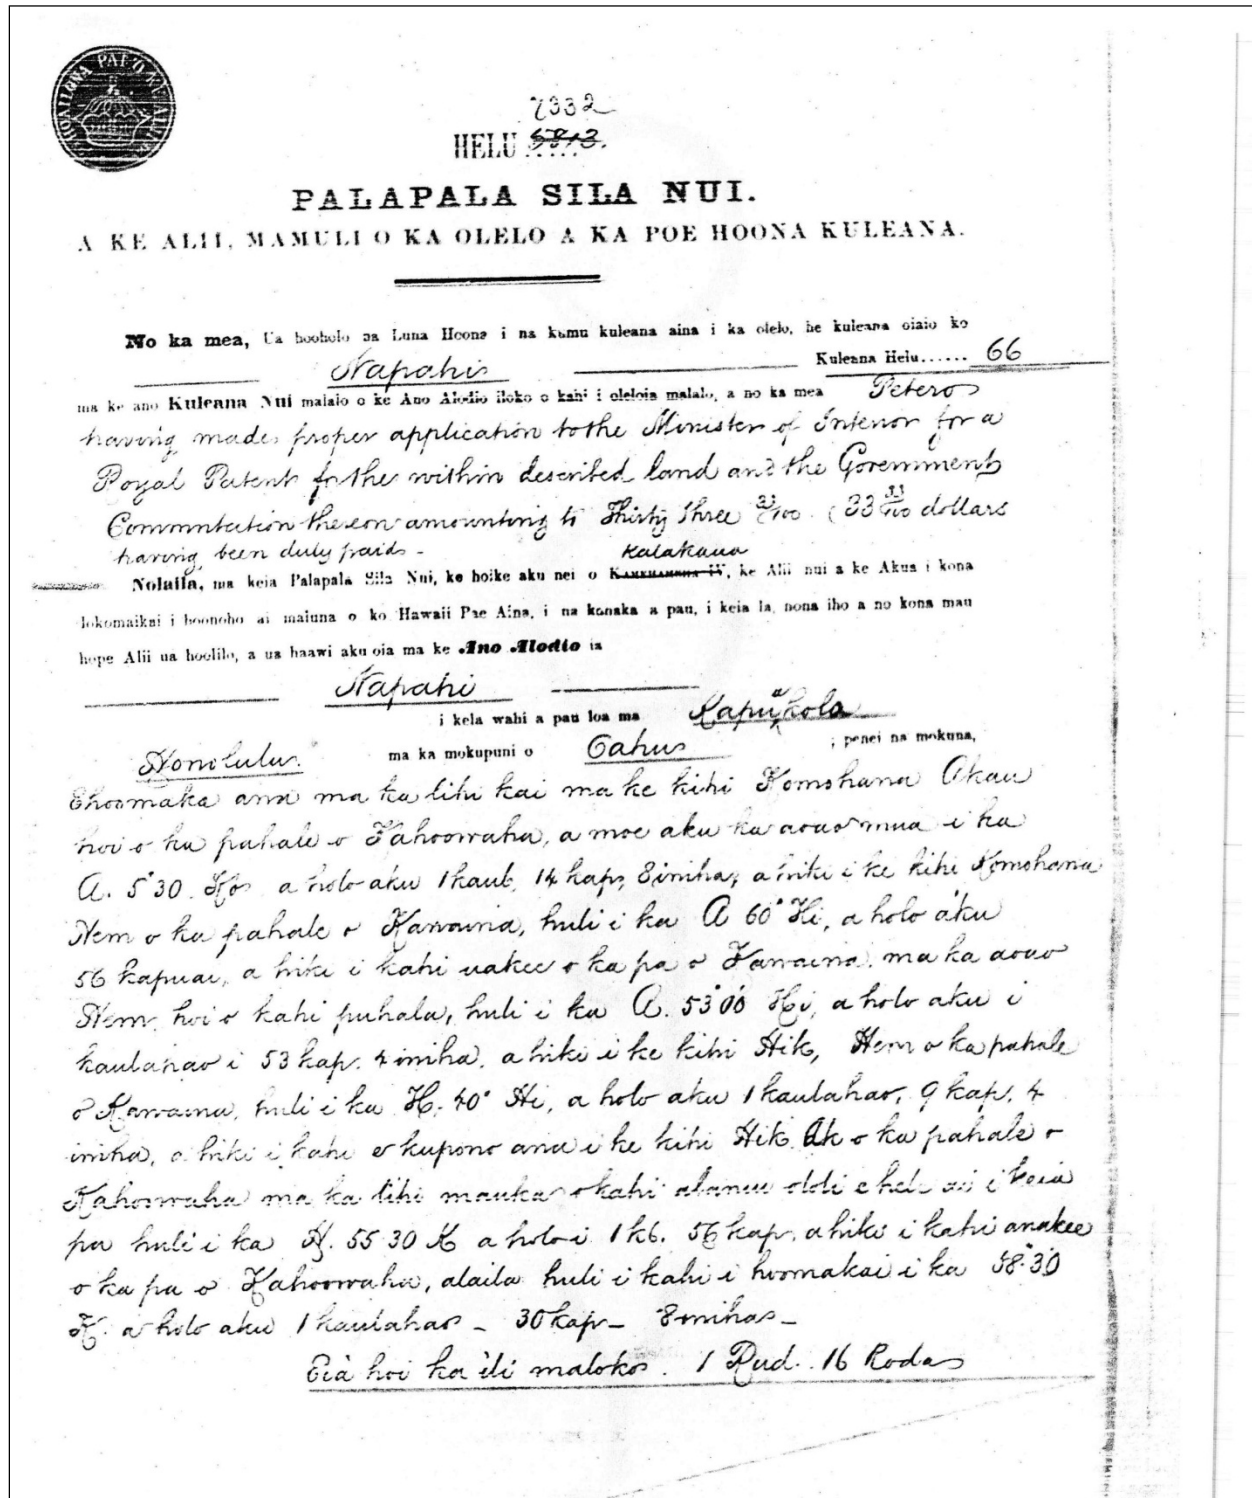 7332
HELU 5813.
PALAPALA SILA NUI.
A KE ALII, MAMULI O KA OLELO A KA POE HOONA KULEANA.
No ka mea, Ua hooholo na Luna Hoona i na kumu kuleana aina i ka olelo, he kuleana oiaio ko
Napahi Kuleana Helu...... 66
ma ke ano Kuleana Nui malalo o ke Ano Alodio iloko o kahi i oleloia malalo, a no ka mea Petero
having made proper application to the Minister of Interior for a
Royal Patent for the within described land and the Government
Commutation thereon amounting to Thirty three 33/100 (33 33/100 dollars
having been duly paid -
Kalakaua
Nolaila, ma keia Palapala Sila Nui, ke hoike aku nei o KAMEHAMEHA IV, ke Alii nui a ke Akua i kona
lokomaikai i hoonoho ai maluna o ko Hawaii Pae Aina, i na kanaka a pau, i keia la, nona iho a no kona mau
hope Alii ua hoolilo, a ua haawi aku oia ma ke Ano Alodio ia
Napahi
i kela wahi a pau loa ma Kapuukolo
Honolulu. ma ka mokupuni o Oahu ; penei na mokuna,
Ehoomaka ana ma ka lihi kai ma ke kihi Komohana Akau
hoi o ka pahale o Kahoowaha, a moe aku ka aoao mua i ka
A. 5°30 Ko a holo aku 1 kaul, 14 kap, 8 iniha, a hiki i ke kihi Komohana
Hem o ka pahale o Kawaina, huli i ka A 60° Hi, a holo aku
56 kapuai, a hiki i kahi uakee o ka pa o Kawaina ma ka aoao
Hem, hoi o kahi puhala, huli i ka A. 53°00 Hi, a holo aku i
kaulahao i 53 kap. 4 iniha, a hiki i ke kihi Hik, Hem o ka pahale
o Kawaina, huli i ka H. 40° Hi, a holo aku 1 kaulahao, 9 kap, 4
iniha, a hiki i kahi e kupono ana i ke kihi Hik. Ak o ka pahale o
Kahoowaha ma ka lihi mauka o kahi alanui ololi e hele ai i keia
pa huli i ka H. 55 30 K a holo i 1 k6. 56 kap, a hiki i kahi anakee
o ka pa o Kahoowaha, alaila huli i kahi i hoomakai i ka 58°30
K. a holo aku 1 kaulahao - 30 kap - 8 iniha -
Eia hoi ka ili maloko. 1 Rud. 16 Roda